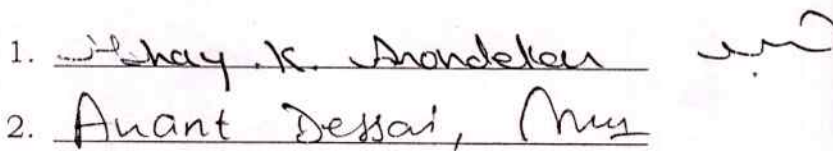 1. Abhay .K. Arondekar
2. Anant Dessai,